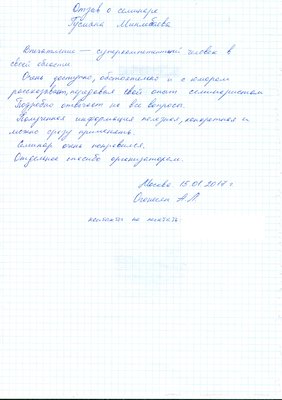 Отзыв о семинаре
Руслана
Впечатление — суперкомпетентный человек в
своей области.
Очень доступно, обстоятельно и с юмором
рассказывает, передавая свой опыт семинаристам
Подробно отвечает на все вопросы.
Полученная информация полезная, конкретная и
можно сразу применять.
Семинар очень понравился.
Отдельное спасибо организаторам.
Москва 15.01.2017 г
А.Л.
контакты не печатать.